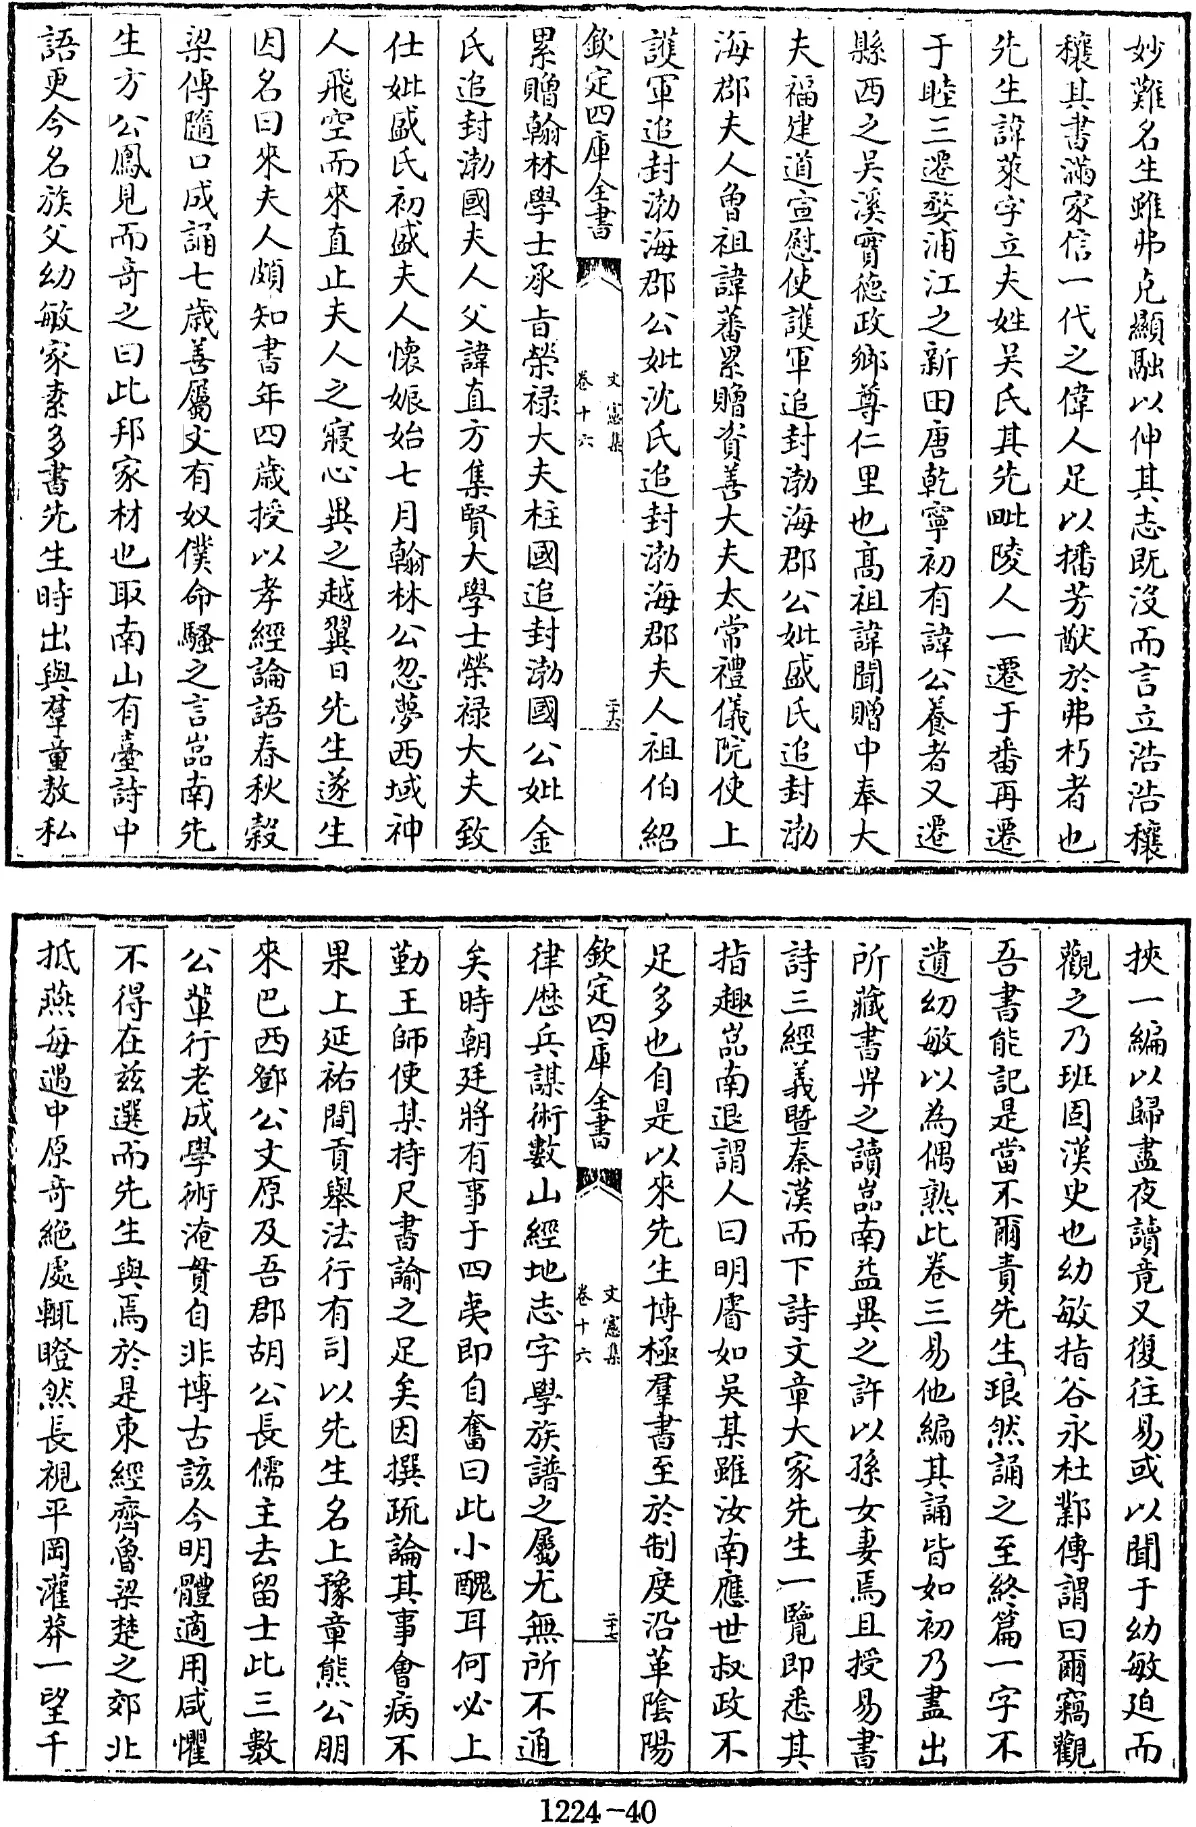 妙難名生雖弗克顯融以伸其志既沒而言立浩浩穰
穰其書滿家信一代之偉人足以播芳猷於弗朽者也
先生諱萊字立夫姓吴氏其先毗陵人一遷于番再遷
于睦三遷婺浦江之新田唐乾寧初有諱公養者又遷
縣西之吴溪實德政鄉尊仁里也高祖諱聞贈中奉大
夫福建道宣慰使護軍追封渤海郡公妣盛氏追封渤
海郡夫人曾祖諱蕃累贈資善大夫太常禮儀院使上
護軍追封渤海郡公妣沈氏追封渤海郡夫人祖伯紹
欽定四庫全書
文憲集
卷十六
二十六
累贈翰林學士承旨榮禄大夫柱國追封渤國公妣金
氏追封渤國夫人父諱直方集賢大學士榮禄大夫致
仕妣盛氏初盛夫人懷娠始七月翰林公忽夢西域神
人飛空而來直止夫人之寢心異之越翼日先生遂生
因名曰來夫人頗知書年四歲授以孝經論語春秋穀
梁傳隨口成誦七歲善屬文有奴僕命騷之言嵓南先
生方公鳳見而奇之曰此邦家材也取南山有臺詩中
語更今名族父幼敏家素多書先生時出與羣童敖私
挾一編以歸盡夜讀竟又復往易或以聞于幼敏廹而
觀之乃班固漢史也幼敏指谷永杜鄴傳謂曰爾竊觀
吾書能記是當不爾責先生琅然誦之至終篇一字不
遺幼敏以為偶熟此卷三易他編其誦皆如初乃盡出
所藏書畀之讀嵓南益異之許以孫女妻焉且授易書
詩三經義暨秦漢而下詩文章大家先生一覽即悉其
指趣嵓南退謂人曰明睿如吴某雖汝南應世叔政不
足多也自是以來先生博極羣書至於制度沿革陰陽
欽定四庫全書
文憲集
卷十六
二十七
律厯兵謀術數山經地志字學族譜之屬尤無所不通
矣時朝廷將有事于四夷即自奮曰此小醜耳何必上
勤王師使某持尺書諭之足矣因撰疏論其事會病不
果上延祐間貢舉法行有司以先生名上豫章熊公朋
來巴西鄧公文原及吾郡胡公長儒主去留士此三數
公輩行老成學術淹貫自非博古該今明體適用咸懼
不得在兹選而先生與焉於是東經齊魯梁楚之郊北
抵燕每遇中原奇絶處輒瞪然長視平岡灌莽一望千
1224-40